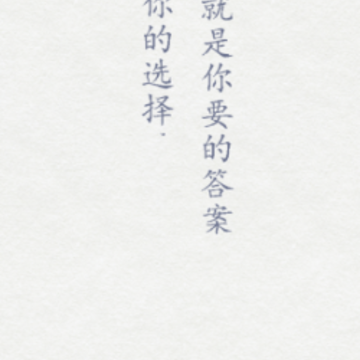 就是你要的答案
你的选择.